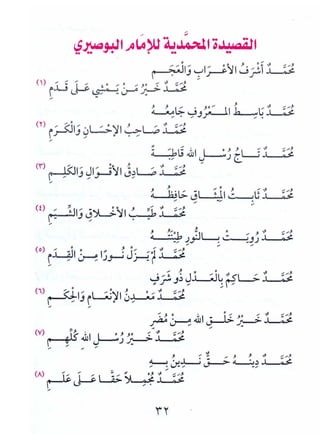 القصيدة المحمَّدية للإمَام البوصيري
مُحَمَّدٌ أَشْرَفُ الأَعْرَابِ وَالْعَجَمِ
مُحَمَّدٌ خَيْرُ مَنْ يَمْشِي عَلَى قَدَمِ (١)
مُحَمَّدٌ بَاسِطُ الْمَعْرُوفِ جَامِعُهُ
مُحَمَّدٌ صَاحِبُ الإِحْسَانِ وَالْكَرَمِ (٢)
مُحَمَّدٌ تَاجُ رُسْلِ اللهِ قَاطِبَةً
مُحَمَّدٌ صَادِقُ الأَقْوَالِ وَالْكَلِمِ (٣)
مُحَمَّدٌ ثَابِتُ الْمِيثَاقِ حَافِظُهُ
مُحَمَّدٌ طَيِّبُ الأَخْلاَقِ وَالشِّيَمِ (٤)
مُحَمَّدٌ رُوِيَتْ بِالنُّورِ طِينَتُهُ
مُحَمَّدٌ لَمْ يَزَلْ نُورًا مِنَ الْقِدَمِ (٥)
مُحَمَّدٌ حَاكِمٌ بِالْعَدْلِ ذُو شَرَفٍ
مُحَمَّدٌ مَعْدِنُ الإِنْعَامِ وَالْحِكَمِ (٦)
مُحَمَّدٌ خَيْرُ خَلْقِ اللهِ مِنْ مُضَرٍ
مُحَمَّدٌ خَيْرُ رُسْلِ اللهِ كُلِّهِمِ (٧)
مُحَمَّدٌ دِينُهُ حَقٌّ نَدِينُ بِهِ
مُحَمَّدٌ مُجْمِلاً حَقًّا عَلَى عَلَمِ (٨)
٣٢